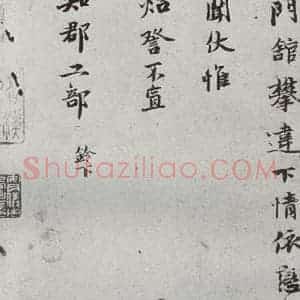 門館攀違下情依
聞伏惟
炤詧不宣
知郡工部
Shufaziliao.com